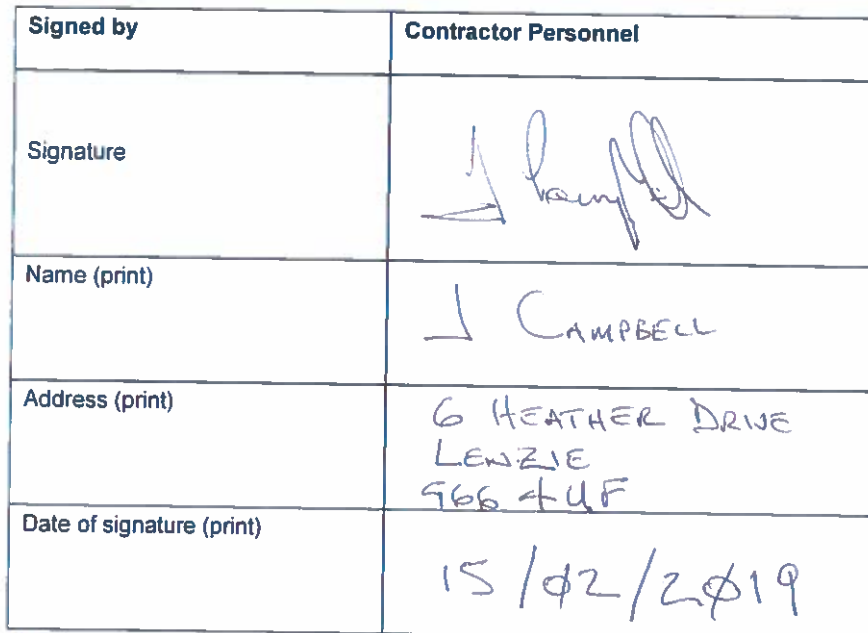 Signed by Contractor Personnel
Signature J Campbell
Name (print) J CAMPBELL
Address (print) 6 HEATHER DRIVE
LENZIE
G66 4UF
Date of signature (print) 15/02/2019